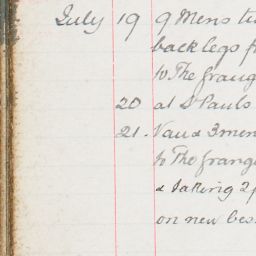 July 19 9 Mens ti
back legs f
to The Grang
20 at St Pauls
21. Van & 3 men
to The Grang
& taking 2
on new bes